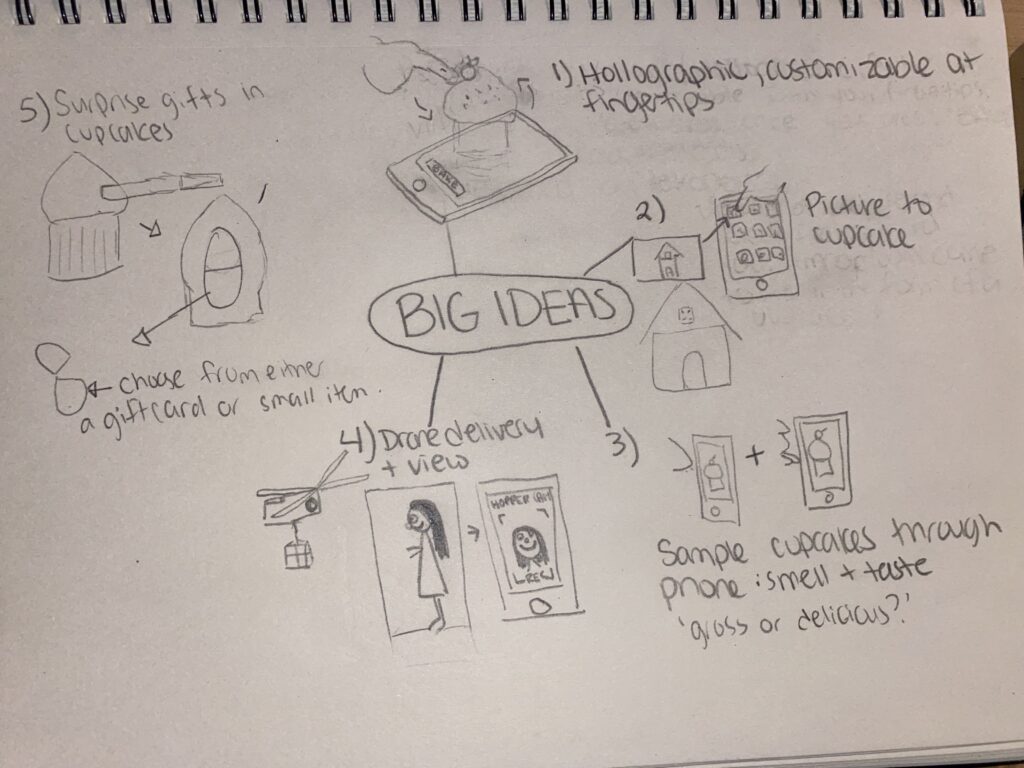 BIG IDEAS
1) Hollographic, customizable at
fingertips
BAKE
2)
Picture to
cupcake
3)
Sample cupcakes through
phone : smell + taste
'gross or delicious?'
4) Drone delivery
+ view
REC
5) Surprise gifts in
cupcakes
choose from either
a giftcard or small item.